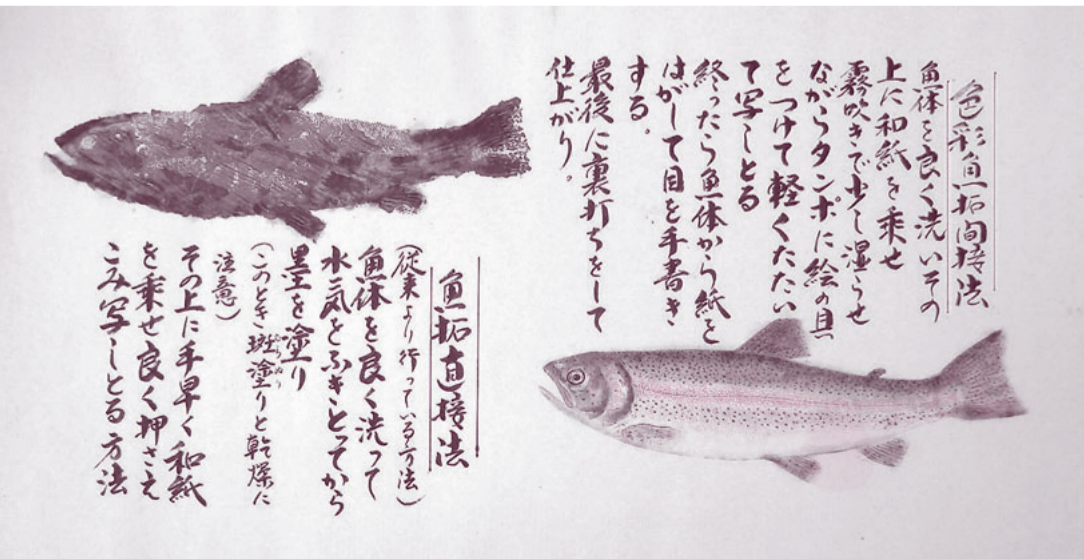 色彩魚拓間接法
魚体を良く洗いその
上に和紙を乗せ
霧吹きで少し湿らせ
ながらタンポに絵の具
をつけて軽くたたい
て写しとる
終ったら魚体から紙を
はがして目を手書き
する。
最後に裏打ちをして
仕上がり。
魚拓直接法
(従来より行っている方法)
魚体を良く洗って
水気をふきとってから
墨を塗り
(このとき斑塗りと乾燥に
注意)
その上に手早く和紙
を乗せ良く押さえ
こみ写しとる方法